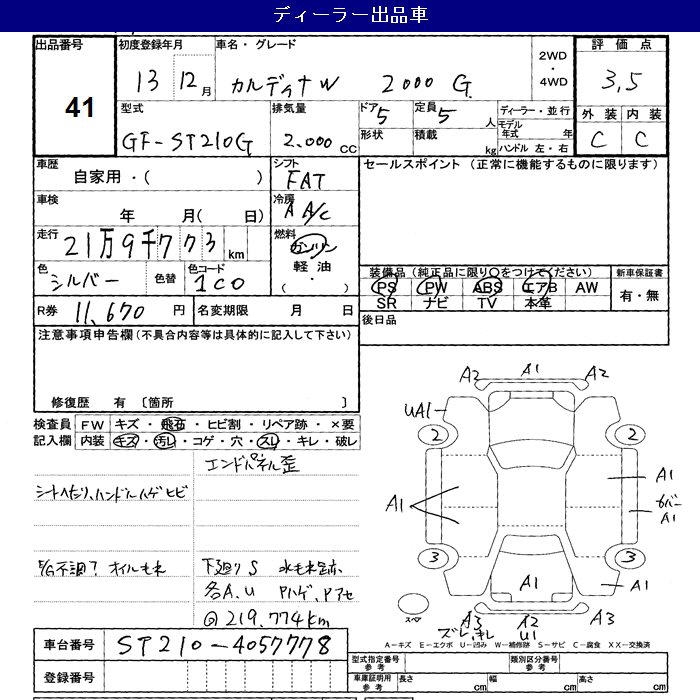 ディーラー出品車
出品番号 41
初度登録年月 13 12月
車名・グレード カルディナW 2000 G
2WD・4WD
評価点 3,5
外装 C 内装 C
型式 GF-ST210G
排気量 2.000 CC
ドア 5
形状
定員 5人
積載 kg
ディーラー・並行
モデル年式 年
ハンドル 左・右
車歴 自家用・( )
シフト FAT
セールスポイント(正常に機能するものに限ります)
車検 年 月( 日)
冷房 A A/C
走行 21万9千773km
燃料 ガソリン 軽油 ・( )
色 シルバー
色替
色コード 1C0
装備品(純正品に限り〇をつけてください)
PS PW ABS エアB AW
SR ナビ TV 本革
新車保証書 有・無
R券 11,670円
名変期限 月 日
後日品
注意事項申告欄(不具合内容等は具体的に記入して下さい)
修復歴 有 〔箇所 〕
検査員記入欄
FW キズ・飛石・ヒビ割・リペア跡・×要
内装 キズ・汚レ・コゲ・穴・スレ・キレ・破レ
エンドパネル歪
シートへたり、ハンドルハゲヒビ
E/G不調? オイルもれ
下廻りS 水もれ跡
各A、U Pハゲ、Pアセ
@219.774km
車台番号 ST210-4057778
登録番号
A2 A1 A2
UA1
2 2
A1 A1
カバーA1
3 3
A1 A1
スペア
A3 A2 A3
ズレ、キレ U1
A-キズ E-エクボ U-凹み W-補修跡 S-サビ C-腐食 XX-交換済
型式指定番号 参考
類別区分番号 参考
車庫証明用 参考 長さ cm 幅 cm 高さ cm